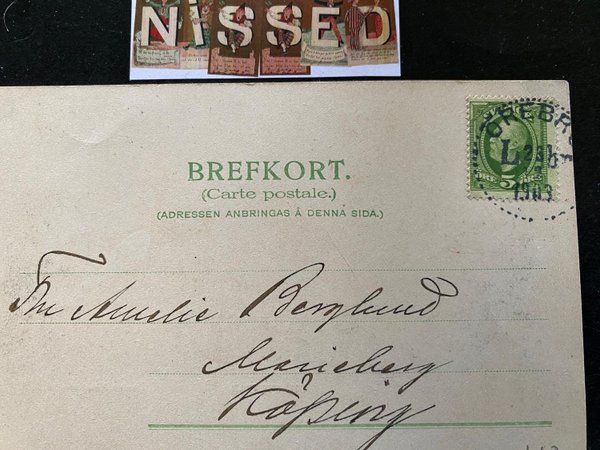 NISSED
BREFKORT.
(Carte postale.)
(ADRESSEN ANBRINGAS Å DENNA SIDA.)
ÖREBRO
L
1903
5
Amelie Berglund
Marieberg
Köping